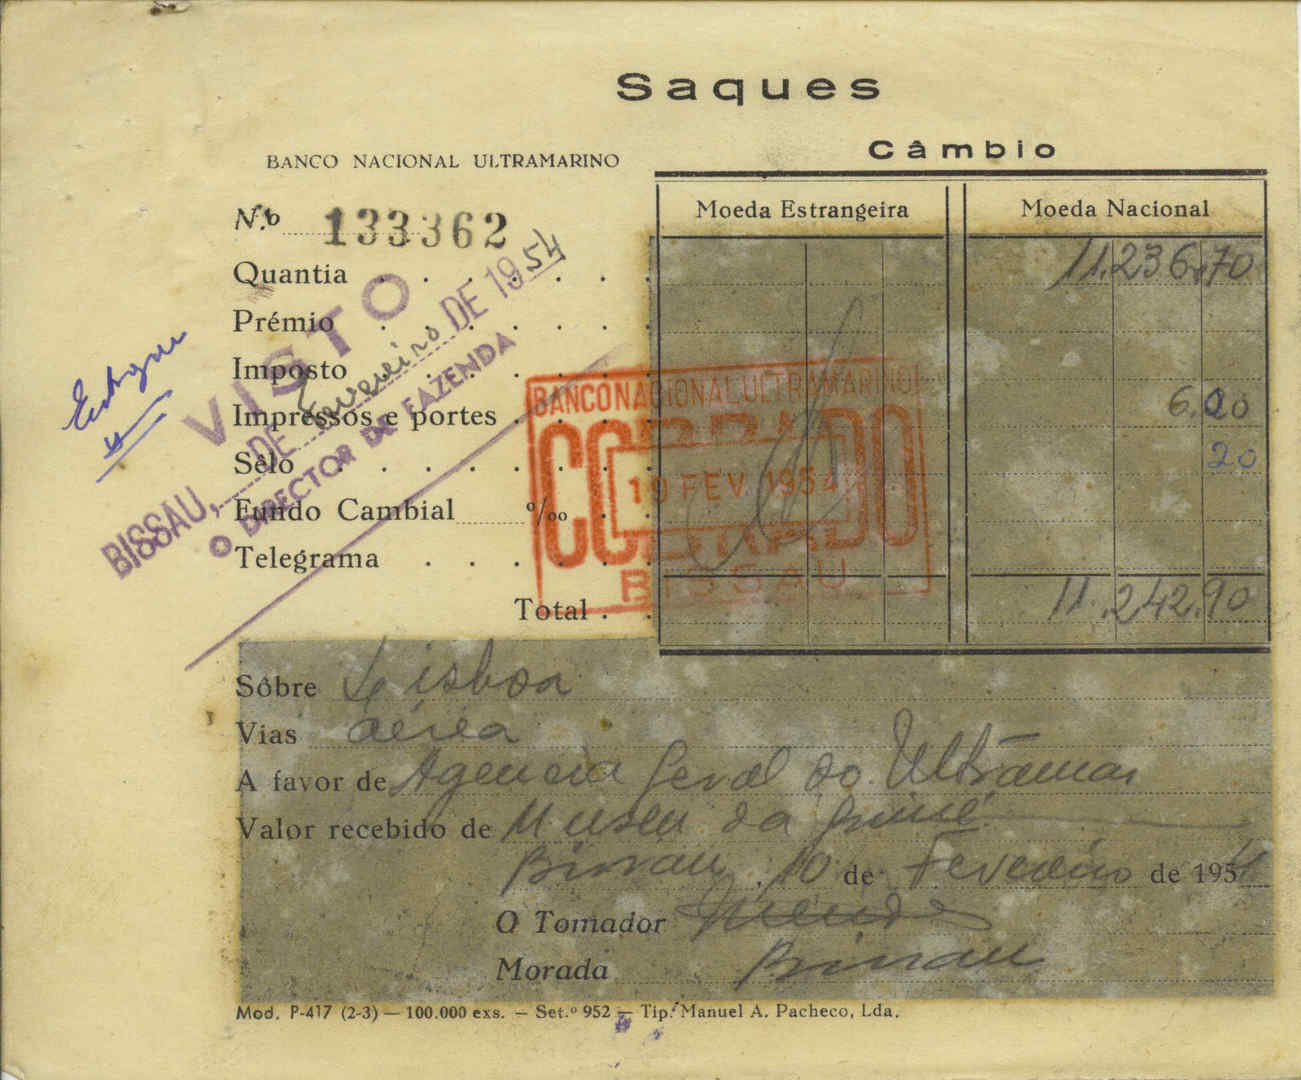 Saques
Câmbio
BANCO NACIONAL ULTRAMARINO
Moeda Estrangeira Moeda Nacional
N.º 133362
Quantia 11.236,70
Prémio
Imposto
Impressos e portes 6,00
Sêlo 20
Fundo Cambial ‰
Telegrama
Total 11.242,90
VISTO
BISSAU, DE Fevereiro DE 1954
O DIRECTOR DE FAZENDA
BANCO NACIONAL ULTRAMARINO
COBRADO
19 FEV. 1954
BISSAU
Sôbre Lisboa
Vias aérea
A favor de Agencia Geral do Ultramar
Valor recebido de Museu da Guiné
Bissau, 10 de Fevereiro de 1954
O Tomador
Morada Bissau
Mod. P-417 (2-3) — 100.000 exs. — Set.º 952 — Tip. Manuel A. Pacheco, Lda.